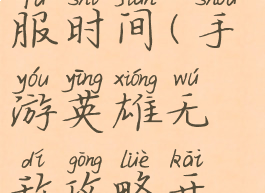 fú shí jiān shǒu
服时间(手
yóu yīng xióng wú
游英雄无
dí gōng lüè kāi
敌攻略开